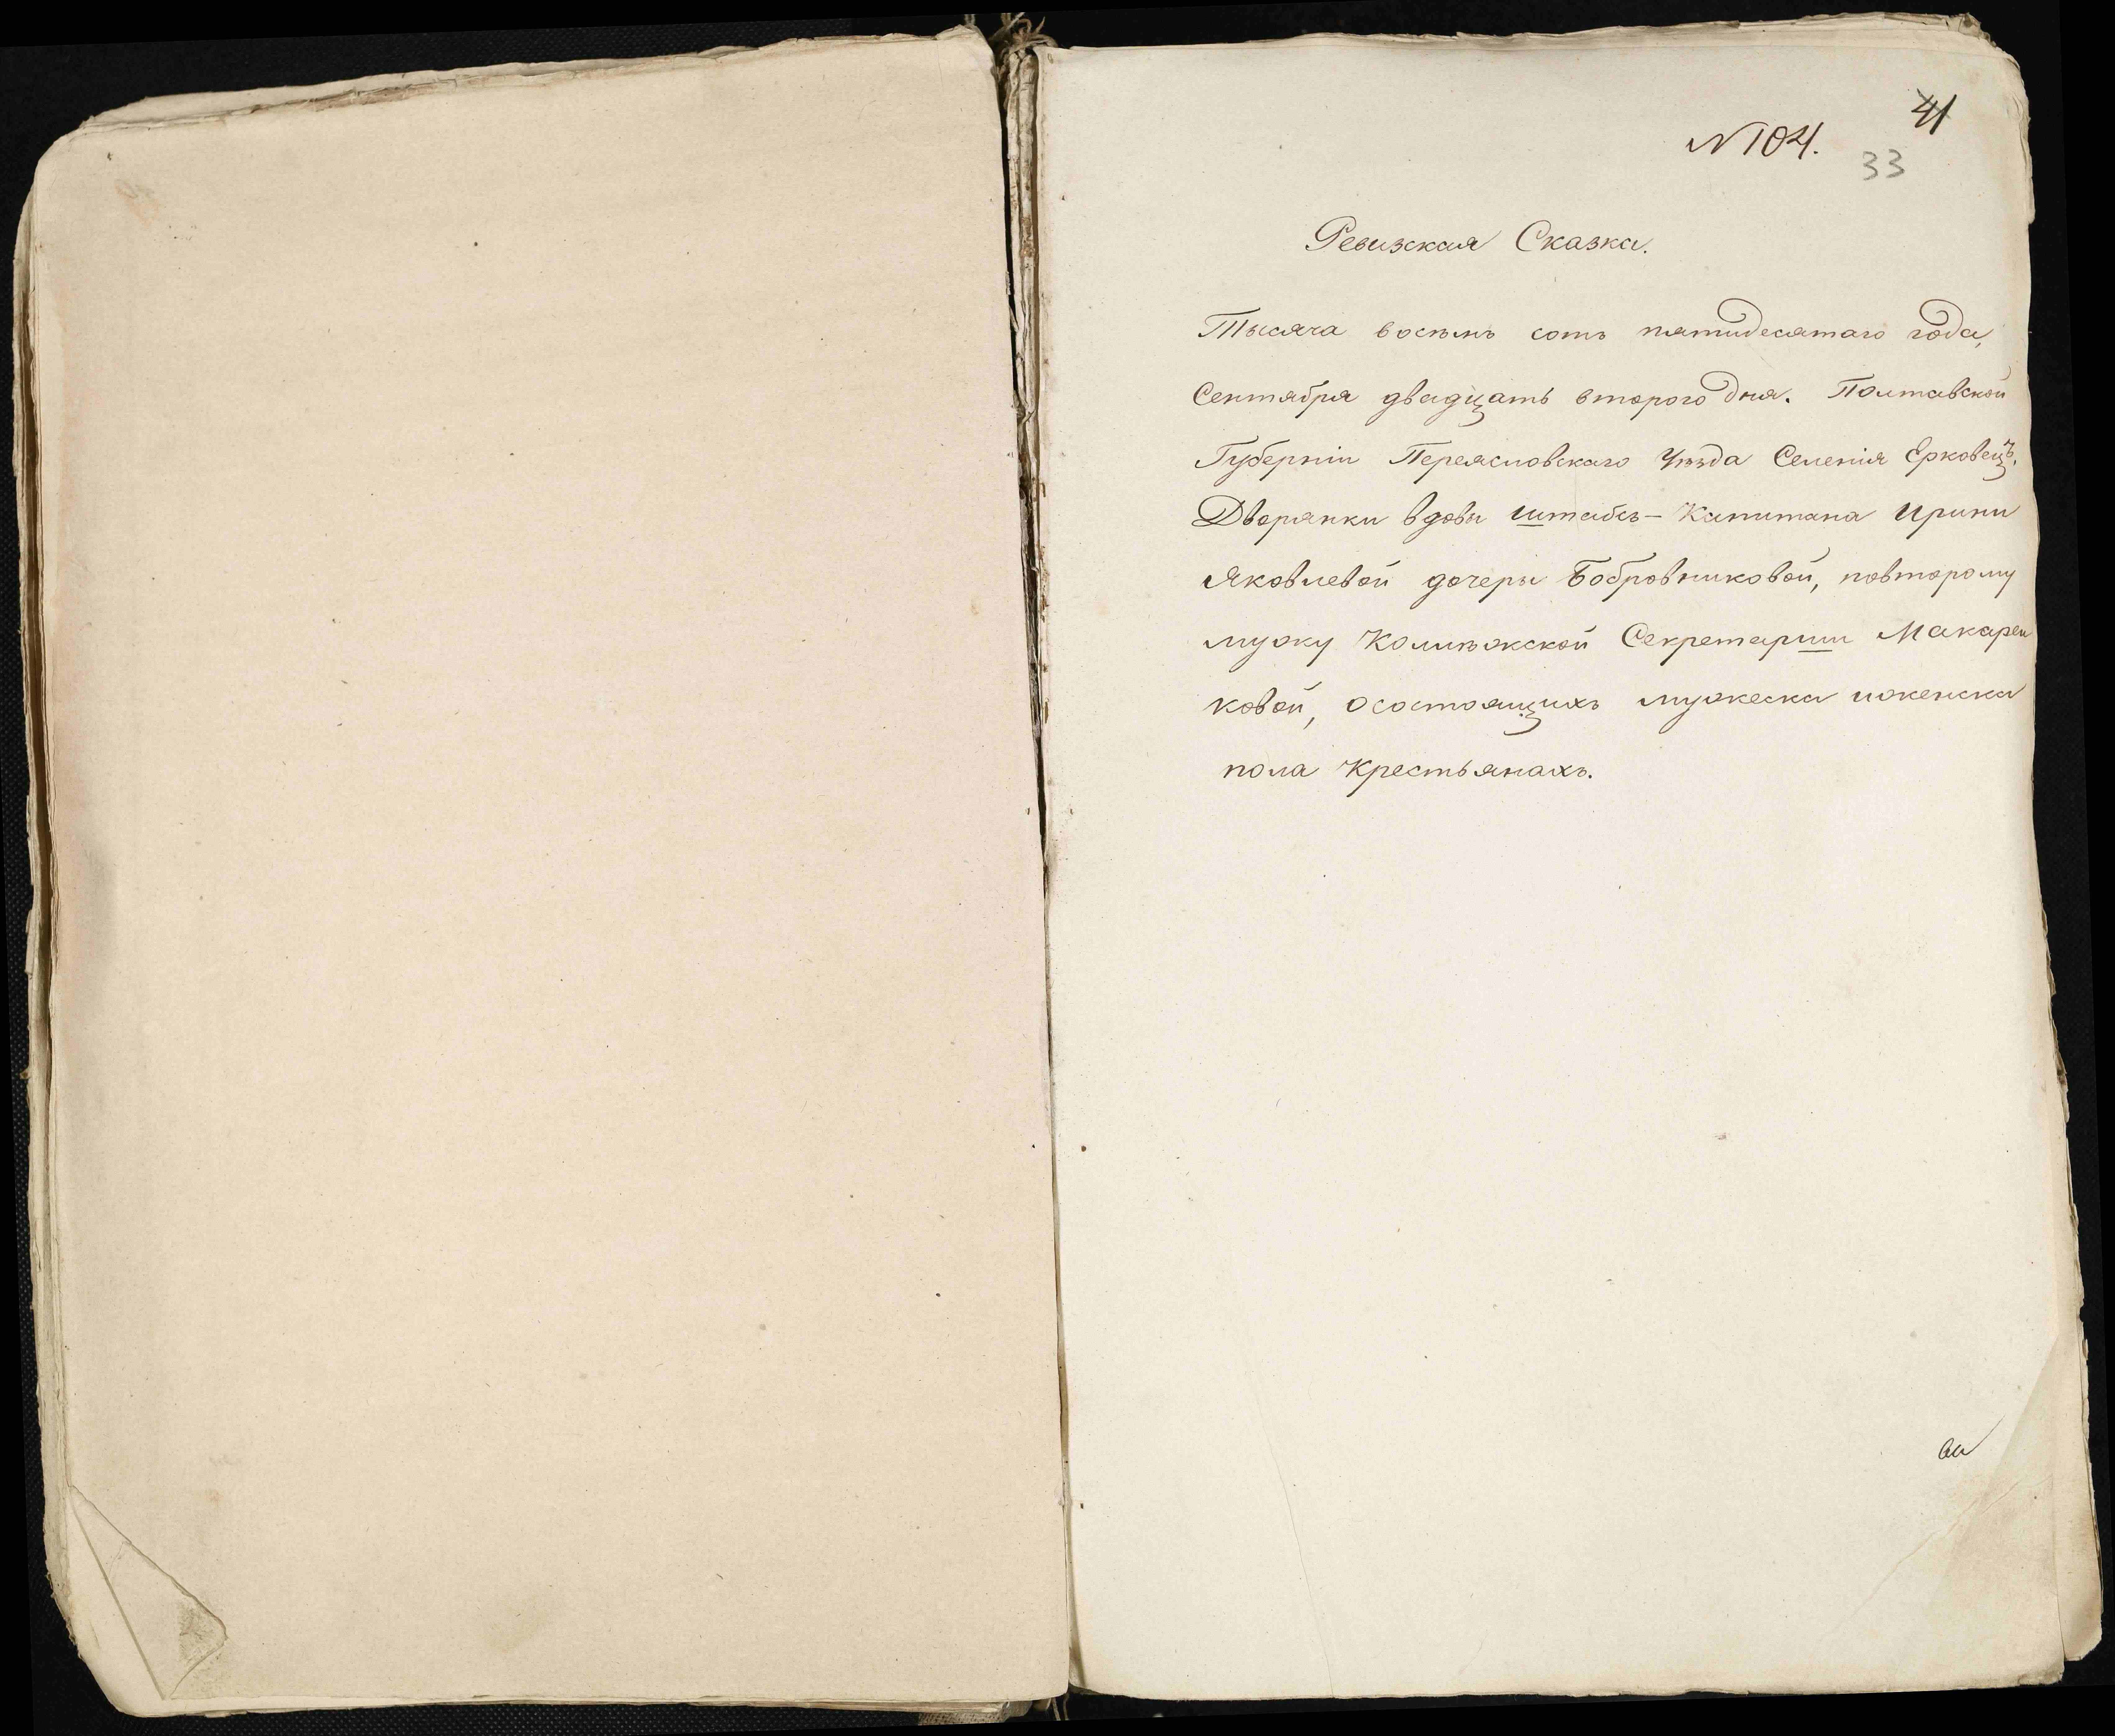 41
N 104.
33
Ревизкая Сказка.
Тысяча восѣмь сотъ пятидесятаго года,
Сентября двадцать второго дня. Полтавской
Губерніи Переясловскаго Уѣзда Селенія Ерковецъ.
Дворянки вдовы штабсъ-Капитана Ирины
Яковлевой дочеры Бобровниковой, повторому
мужу Колѣжской Секретарши Макарен
ковой, осостоящихъ мужеска иженска
пола Крестьянахъ.